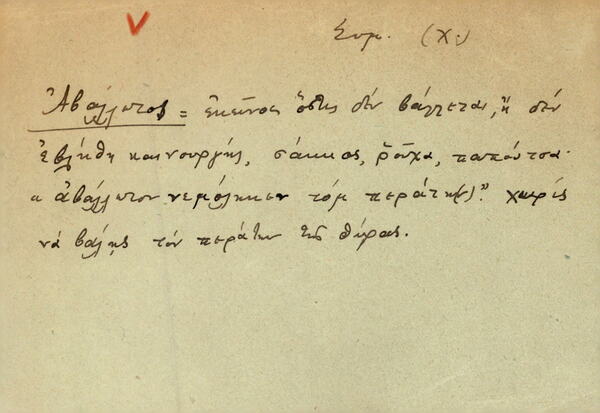 V
Συμ. (Χ.)
Ἀβάλλωτος = ἐκεῖνος ὅστις δέν βάλλεται, ἤ δέν
ἐβλήθη καινουργής, σάκκος, ῥοῦχα, παπούτσα.
"ἀβάλλωτον τόμ περάτη(ν)." χωρίς
νά βάλῃς τόν περάτην τῆς θύρας.